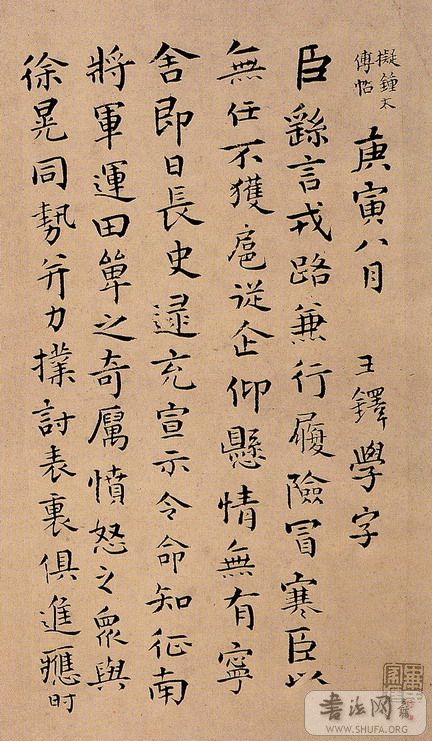 擬鍾太
傅帖
庚寅八月 王鐸學字
臣繇言戎路兼行履險冒寒臣以
無任不獲扈從企仰懸情無有寧
舍即日長史逯充宣示令命知征南
將軍運田單之奇厲憤怒之眾與
徐晃同勢并力撲討表裏俱進應時
書法网
WWW.SHUFA.ORG